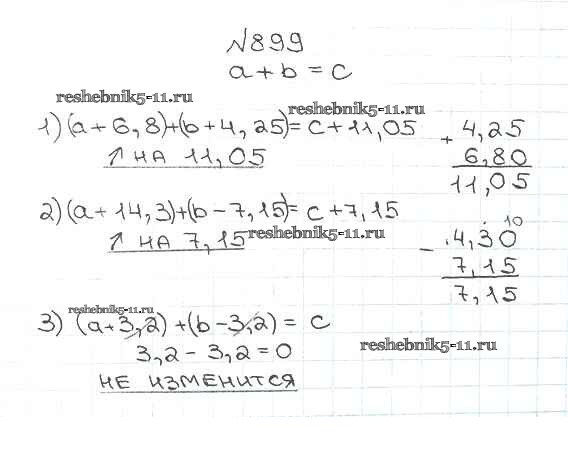 №899
a + b = c
reshebnik5-11.ru
reshebnik5-11.ru
1) (a + 6,8)+(b + 4,25)= c + 11,05
↑ НА 11,05
+ 4,25
6,80
11,05
2) (a + 14,3)+(b - 7,15)= c + 7,15
↑ НА 7,15
reshebnik5-11.ru
10
- .4,30
7,15
7,15
reshebnik5-11.ru
3) (a + 3,2) + (b - 3,2) = c
3,2 - 3,2 = 0
reshebnik5-11.ru
НЕ ИЗМЕНИТСЯ